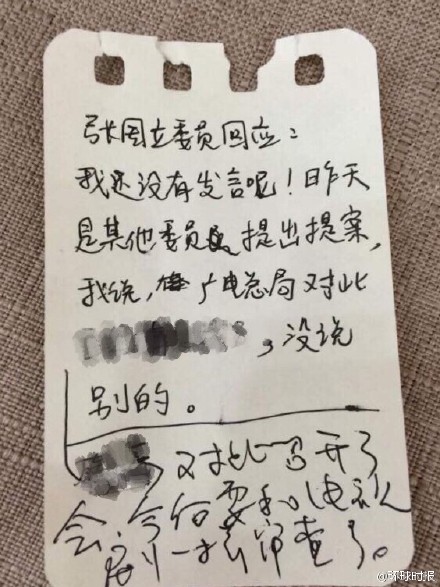 张国立委员回应：
我还没有发言呢！昨天
是其他委员提出提案，
我说，广电总局对此
，没说
别的。
对此已开了
会，今后要和电视
剧一样审查了。
@环球时报